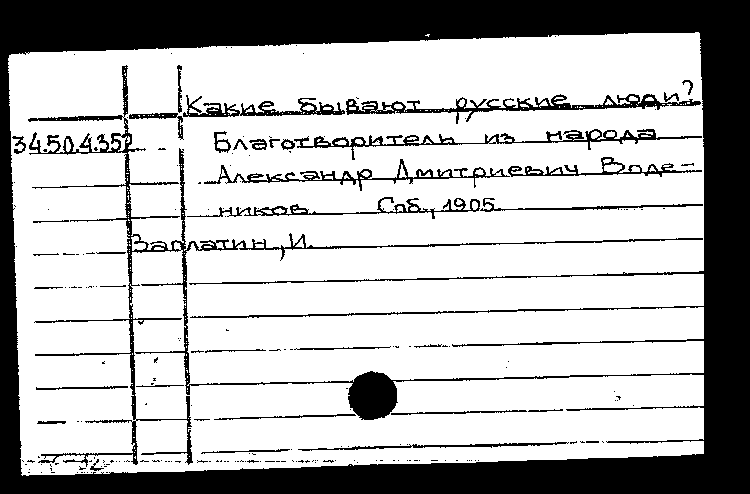 Какие бывают русские люди?
34.50.4.352 Благотворитель из народа
Александр Дмитриевич Воде-
ников. Спб., 1905.
Заплатин, И.